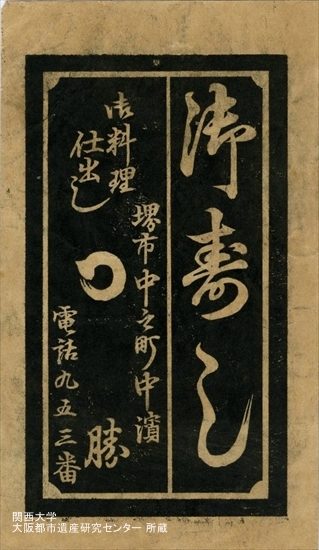 御寿し
堺市中之町中濱
御料理
仕出し
勝
電話九五三番
関西大学
大阪都市遺産研究センター 所蔵